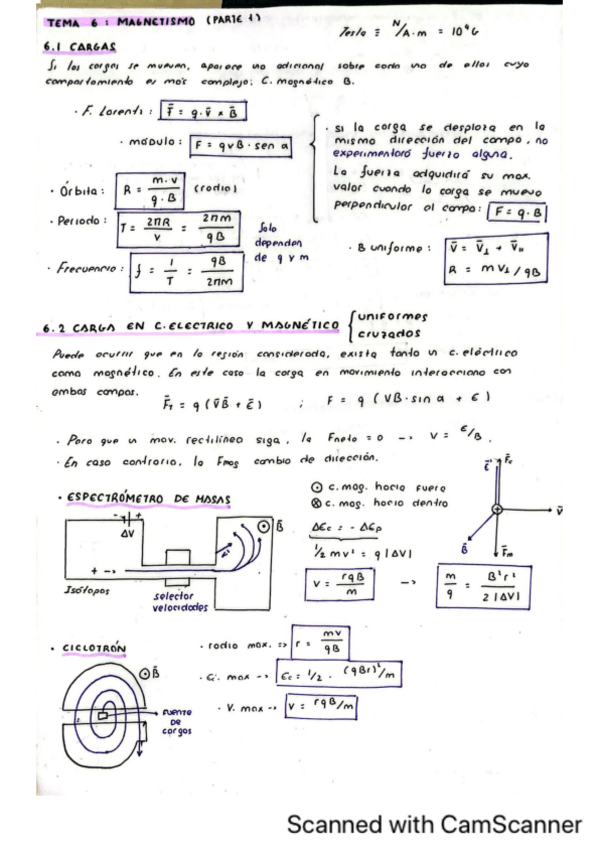 TEMA 6 : MAGNETISMO (PARTE 1)
Tesla ≡ N/A·m = 10⁴G
6.1 CARGAS
Si las cargas se mueven, aparece una adicional sobre cada una de ellas cuyo
comportamiento es más complejo; C. magnético B.
· F. Lorentz : F̄ = q · v̄ × B̄
· módulo : F = qvB · sen α
· si la carga se desplaza en la
misma dirección del campo, no
experimentará fuerza alguna.
La fuerza adquidirá su max.
valor cuando la carga se mueva
perpendicular al campo: F = q · B
· Órbita : R = m·v / q·B (radio)
· Periodo : T = 2πR / v = 2πm / qB
Solo
dependen
de q y m
· Frecuencia : f = 1 / T = qB / 2πm
· B uniforme : v̄ = v̄⊥ + v̄∥
R = m v⊥ / qB
6.2 CARGA EN C. ELECTRICO Y MAGNÉTICO { uniformes
cruzados
Puede ocurrir que en la región considerada, exista tanto un c. eléctrico
como magnético. En este caso la carga en movimiento interacciona con
ambos campos.
F̄T = q (v̄B̄ + ε̄) ; F = q (vB·sin α + ε)
· Para que un mov. rectilíneo siga, la Fneta = 0 --> v = ε/B.
· En caso contrario, la Fmag cambia de dirección.
· ESPECTRÓMETRO DE MASAS
⊙ c. mag. hacia fuera
⊗ c. mag. hacia dentro
ΔV
B̄
+ -->
Isótopos
selector
velocidades
ΔEc = - ΔEp
½ mv² = q |ΔV|
v = rqB / m --> m / q = B²r² / 2|ΔV|
ε̄ F̄e
v̄
B̄ F̄m
· CICLOTRÓN
B̄
fuente
de
cargas
· radio max. => r = mv / qB
· Ec. max --> Ec = 1/2 · (qBr)²/m
· V. max --> v = rqB/m
Scanned with CamScanner